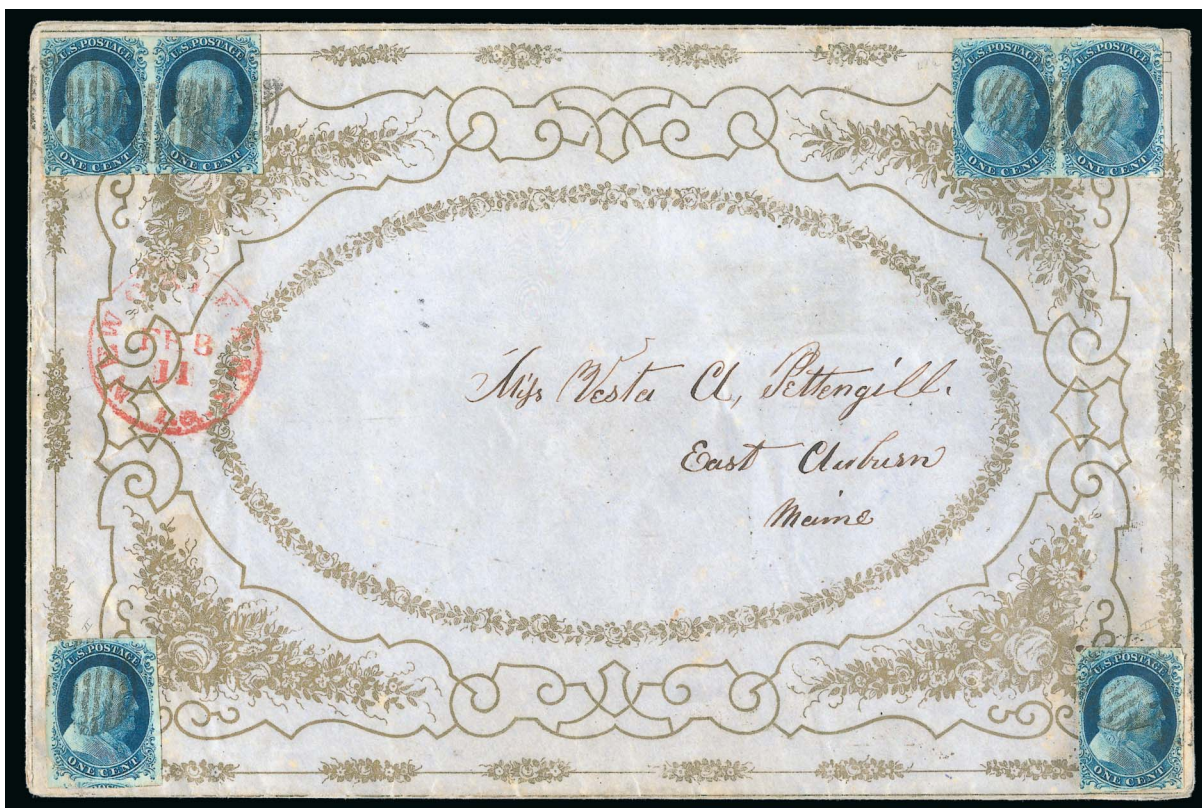 U.S.POSTAGE
ONE CENT
U.S.POSTAGE
ONE CENT
U.S.POSTAGE
ONE CENT
U.S.POSTAGE
ONE CENT
FEB
11
Miss Vesta A, Pettengill.
East Auburn
Maine
U.S.POSTAGE
ONE CENT
U.S.POSTAGE
ONE CENT